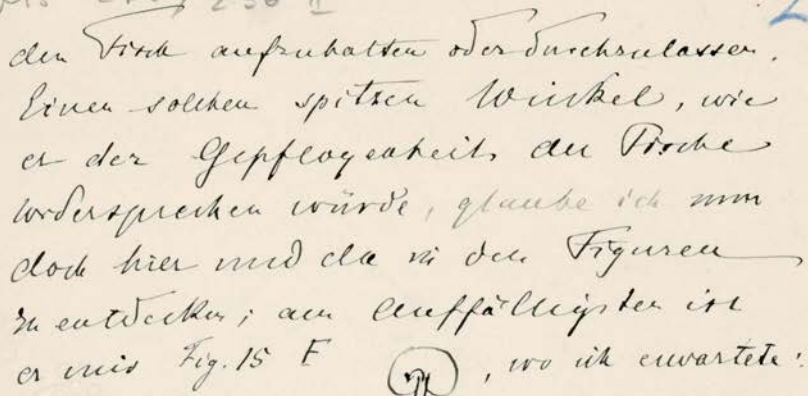 den Fisch aufzuhalten oder durchzulassen.
Einen solchen spitzen Winkel, wie
er der Gepflogenheit der Fische
widersprechen würde, glaube ich nun
doch hier und da in den Figuren
zu entdecken; am auffälligsten ist
er mir Fig. 15 F , wo ich erwartete: